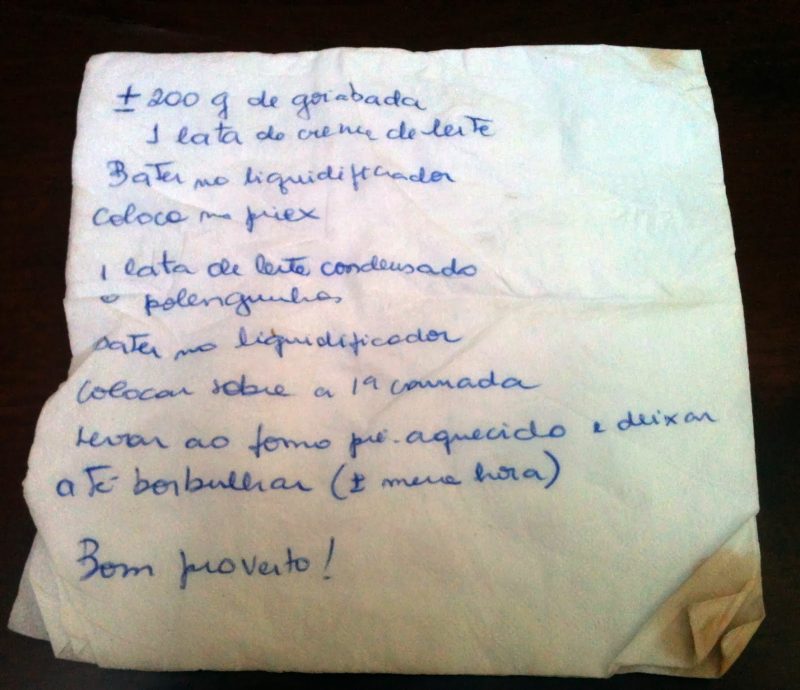 ± 200 g de goiabada
1 lata de creme de leite
Bater no liquidificador
Coloca no pirex
1 lata de leite condensado
polenguinhos
Bater no liquidificador
Colocar sobre a 1ª camada
Levar ao forno pré-aquecido e deixar
até borbulhar (± meia hora)
Bom proveito!